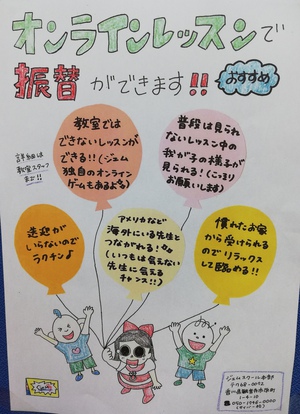 オンラインレッスンで
振替ができます!!
おすすめ
詳細は
教室スタッフ
まで!!
教室では
できないレッスンが
できる!!(ジェム
独自のオンライン
ゲームもあるよ
普段は見られ
ないレッスン中の
我が子の様子が
見られる!(こっそり
お願いします)
送迎が
いらないので
ラクチン♪
アメリカなど
海外にいる先生と
つながれる!
(いつもは会えない
先生に会える
チャンス!!)
慣れたお家
から受けられる
のでリラックス
して臨める!!
ジェムスクール本部
〒768-0072
1-4-10